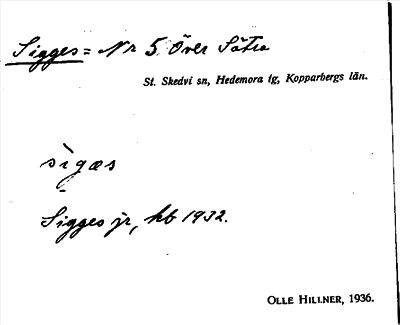 Sigges = Nr 5 Över Sätra
St. Skedvi sn, Hedemora tg, Kopparbergs län.
sìgæs
Sigges jr, hb 1932.
OLLE HILLNER, 1936.